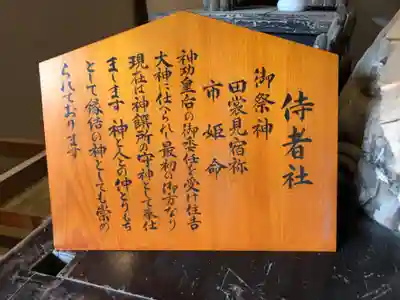 侍者社
御祭神
田裳見宿祢
市姫命
神功皇后の御委任を受け住吉
大神に仕へられ最初の御方なり
現在は神饌所の守神として奉仕
まします 神と人との仲とりもち
として縁結の神としても崇め
られております